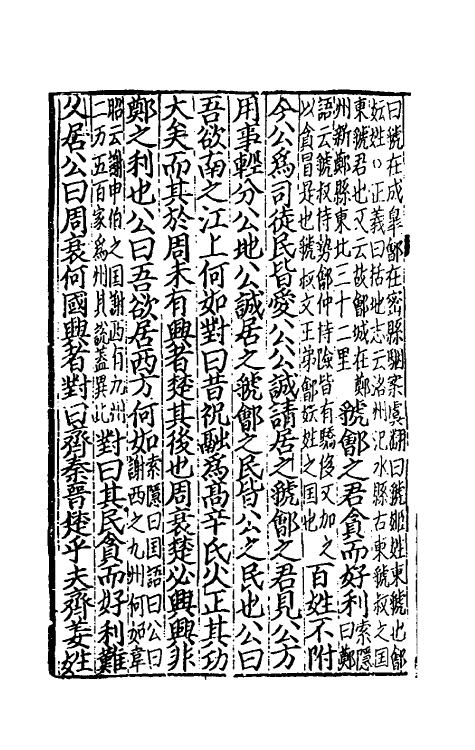 曰虢在成皋鄶在密縣駰案虞翻曰虢姬姓東虢也鄶
妘姓〻正義曰括地志云洛州汜水縣古東虢叔之国
東虢君也又云故鄶城在鄭
州新鄭縣東北三十二里
虢鄶之君貪而好利
索隱
曰鄭
語云虢叔恃勢鄶仲恃險皆有驕侈又加之
以貪冒是也虢叔文王弟鄶妘姓之国也
百姓不附
今公爲司徒民皆愛公公誠請居之虢鄶之君見公方
用事輕分公地公誠居之虢鄶之民皆公之民也公曰
吾欲南之江上何如對曰昔祝融爲高辛氏火正其功
大矣而其於周未有興者楚其後也周衰楚必興興非
鄭之利也公曰吾欲居西方何如
索隱曰国語曰公曰
謝西之九州何如韋
昭云謝申伯之国謝西有九州
二万五百家爲州其說蓋異此
對曰其民貪而好利難
久居公曰周衰何國興者對曰齊秦晉楚乎夫齊姜姓